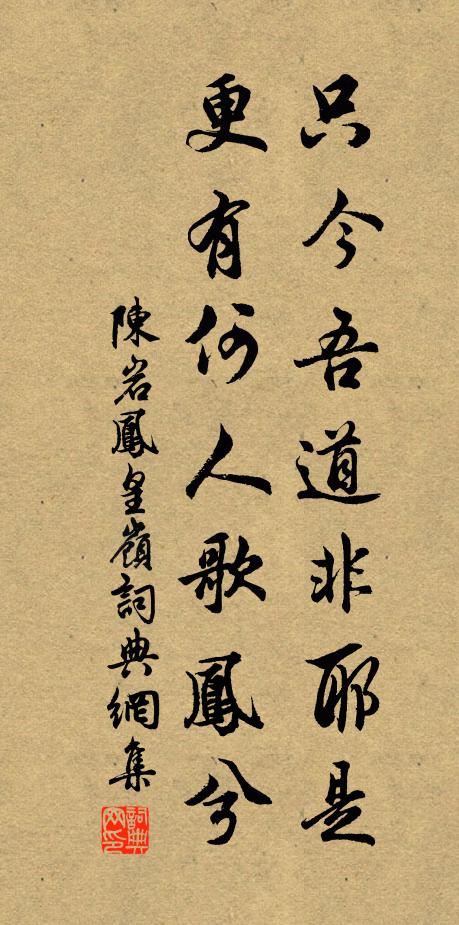 只今吾道非耶是
更有何人歌鳳兮
陳岩鳳皇嶺詞典網集
詞典網印